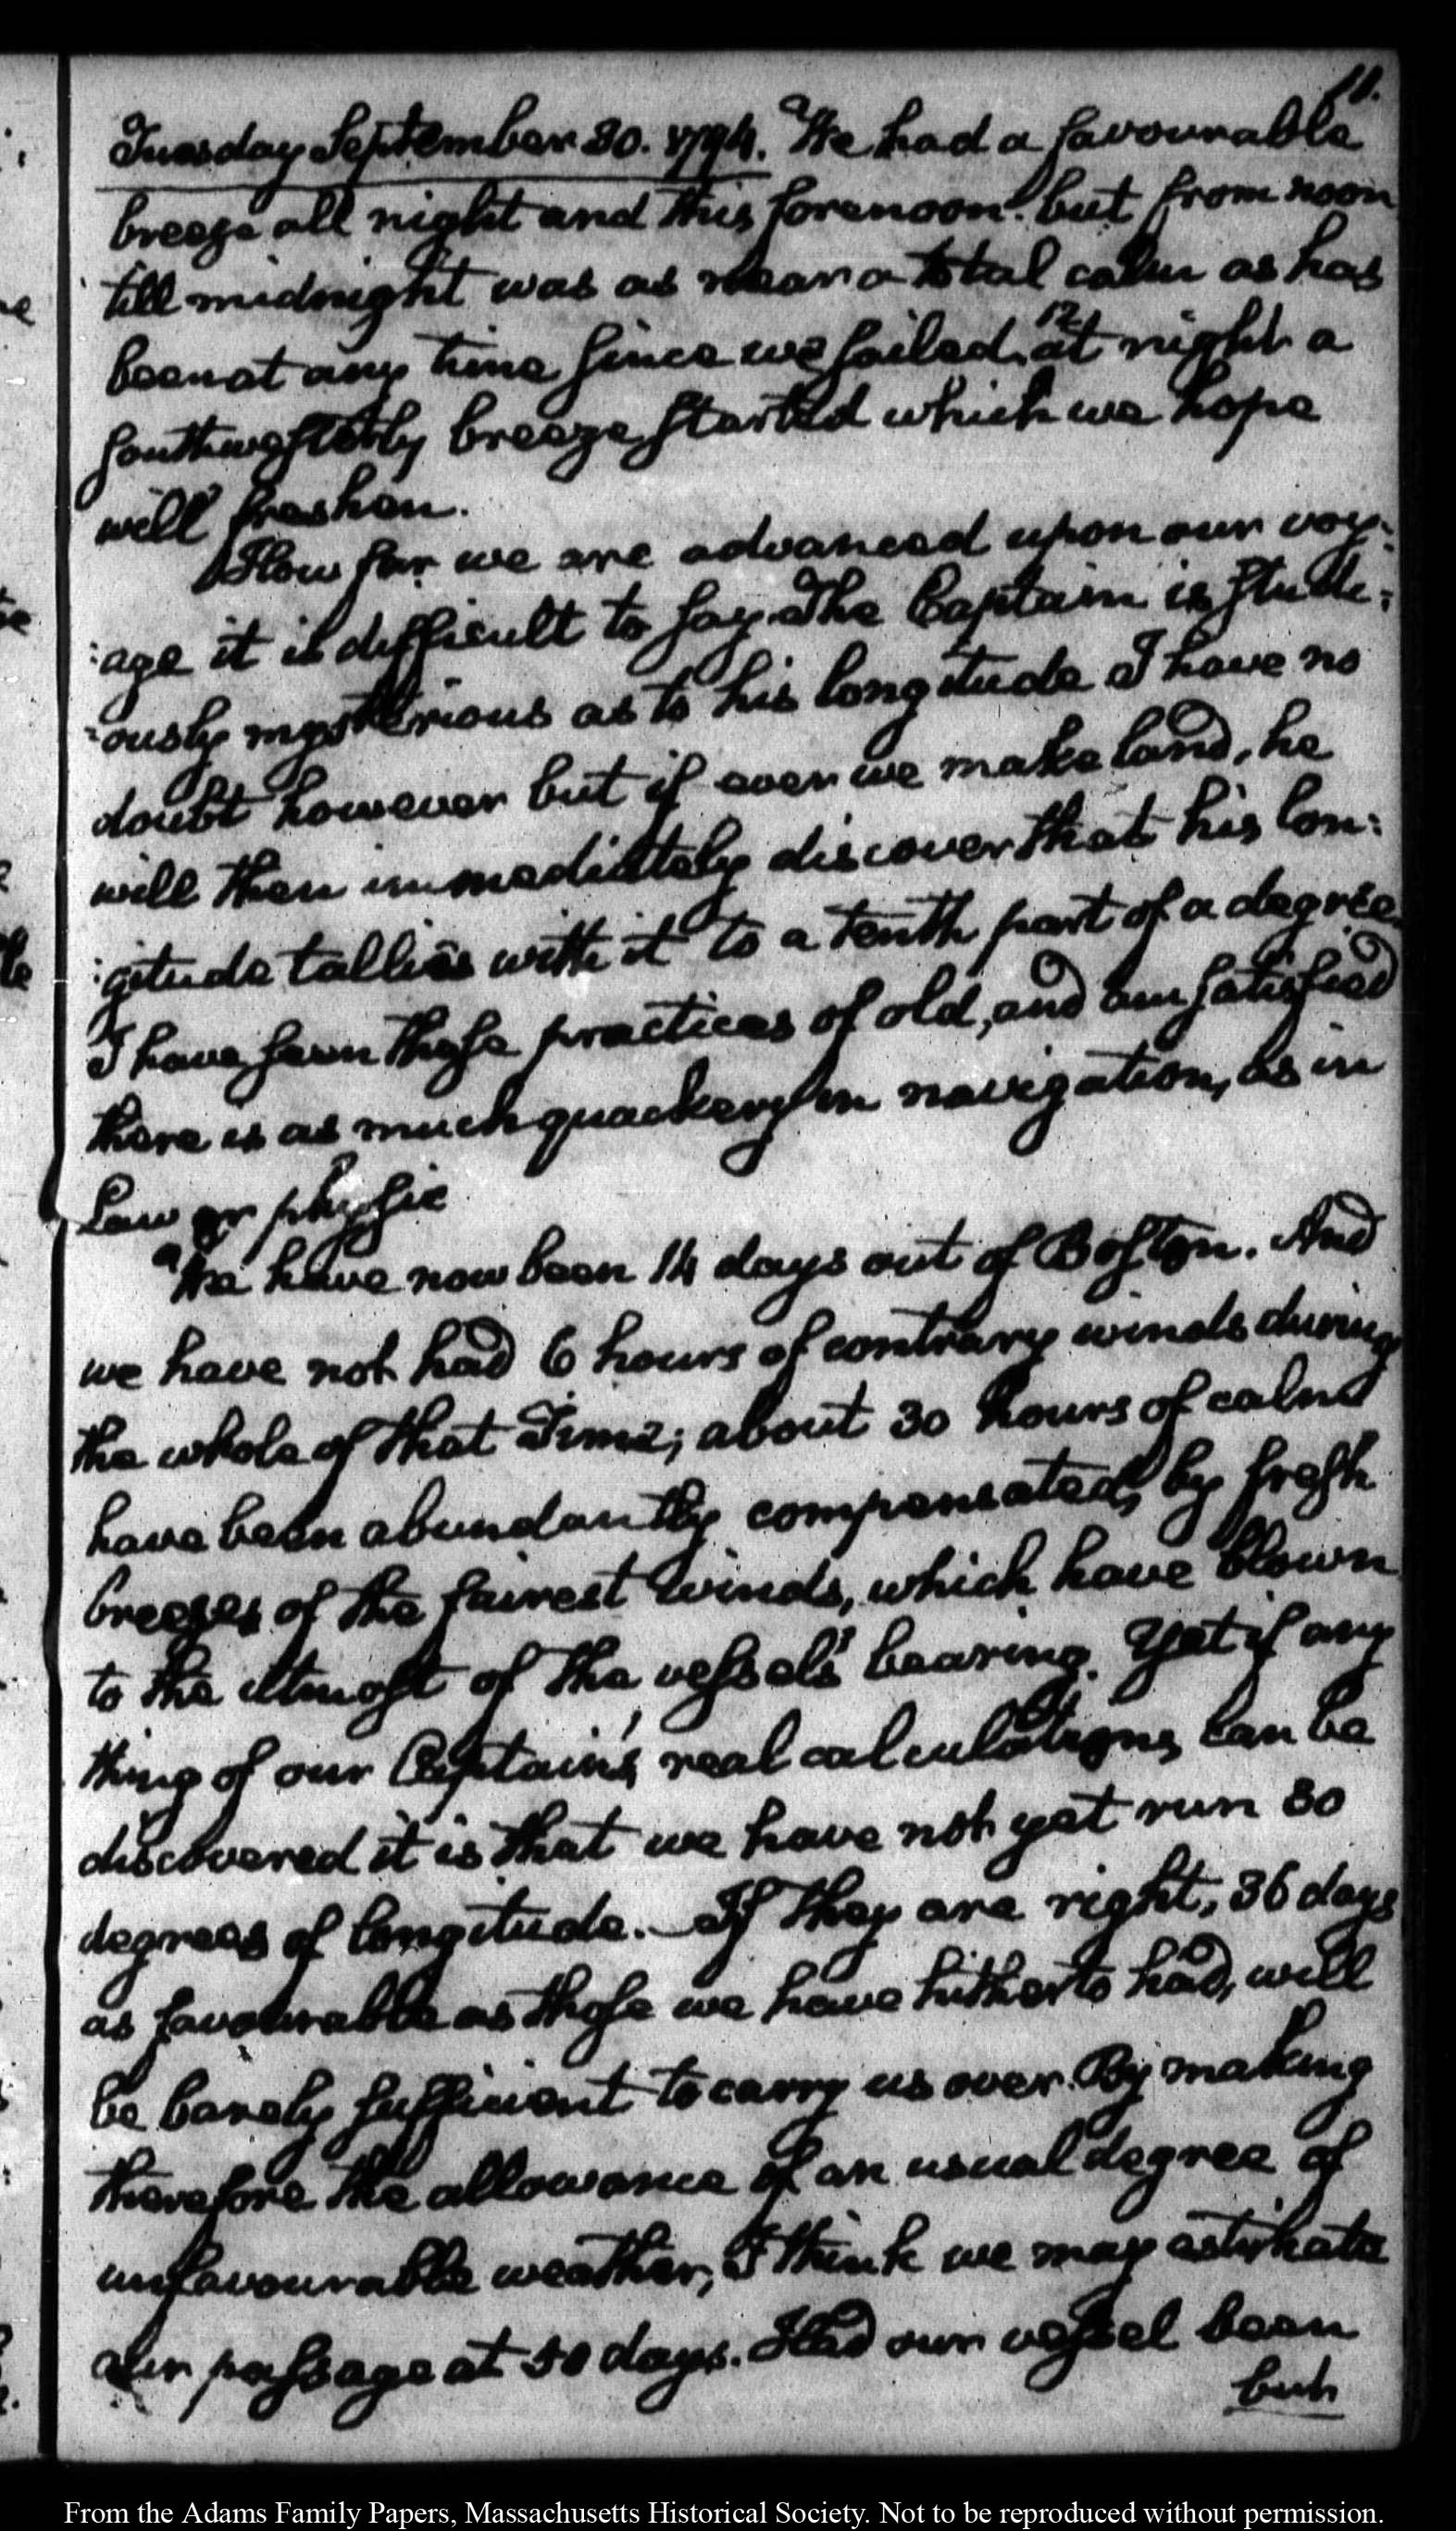 11.
Tuesday September 30. 1794. We had a favourable
breeze all night and this forenoon. but from noon
till midnight was as near a total calm as has
been at any time since we sailed. at 12 night a
southwesterly breeze started which we hope
will freshen.
How far we are advanced upon our voy:
:age it is difficult to say. The Captain is studi:
:ously mysterious as to his longitude I have no
doubt however but if ever we make land, he
will then immediately discover that his lon:
:gitude tallies with it to a tenth part of a degree
I have seen those practices of old, and am satisfied
there is as much quackery in navigation, as in
Law or physic
We have now been 14 days out of Boston. And
we have not had 6 hours of contrary winds during
the whole of that Time; about 30 hours of calm
have been abundantly compensated, by fresh
breezes of the fairest winds, which have blown
to the utmost of the vessels' bearing. Yet if any
thing of our Captain's real calculations can be
discovered it is that we have not yet run 30
degrees of longitude. If they are right, 36 days
as favourable as those we have hitherto had, will
be barely sufficient to carry us over. By making
therefore the allowance of an usual degree of
unfavourable weather, I think we may estimate
our passage at 50 days. Had our vessel been
but
From the Adams Family Papers, Massachusetts Historical Society. Not to be reproduced without permission.